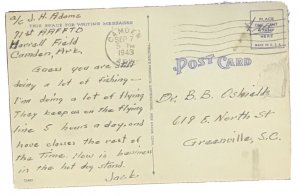 a/c J. H. Adams
THIS SPACE FOR WRITING MESSAGES
91st AAFFTD
Harrell Field
Camden, Ark.
Guess you are still
doing a lot of fishing—
I'm doing a lot of flying
They keep us on the flying
line 5 hours a day, and
have classes the rest of
the time. How is business
in the hot dog stand.
Jack.
CAMDEN
SEP 7
PM
1943
PLACE
HERE
POST CARD
Dr. B. B. Oshields
619 E. North St
Greenville, S.C.